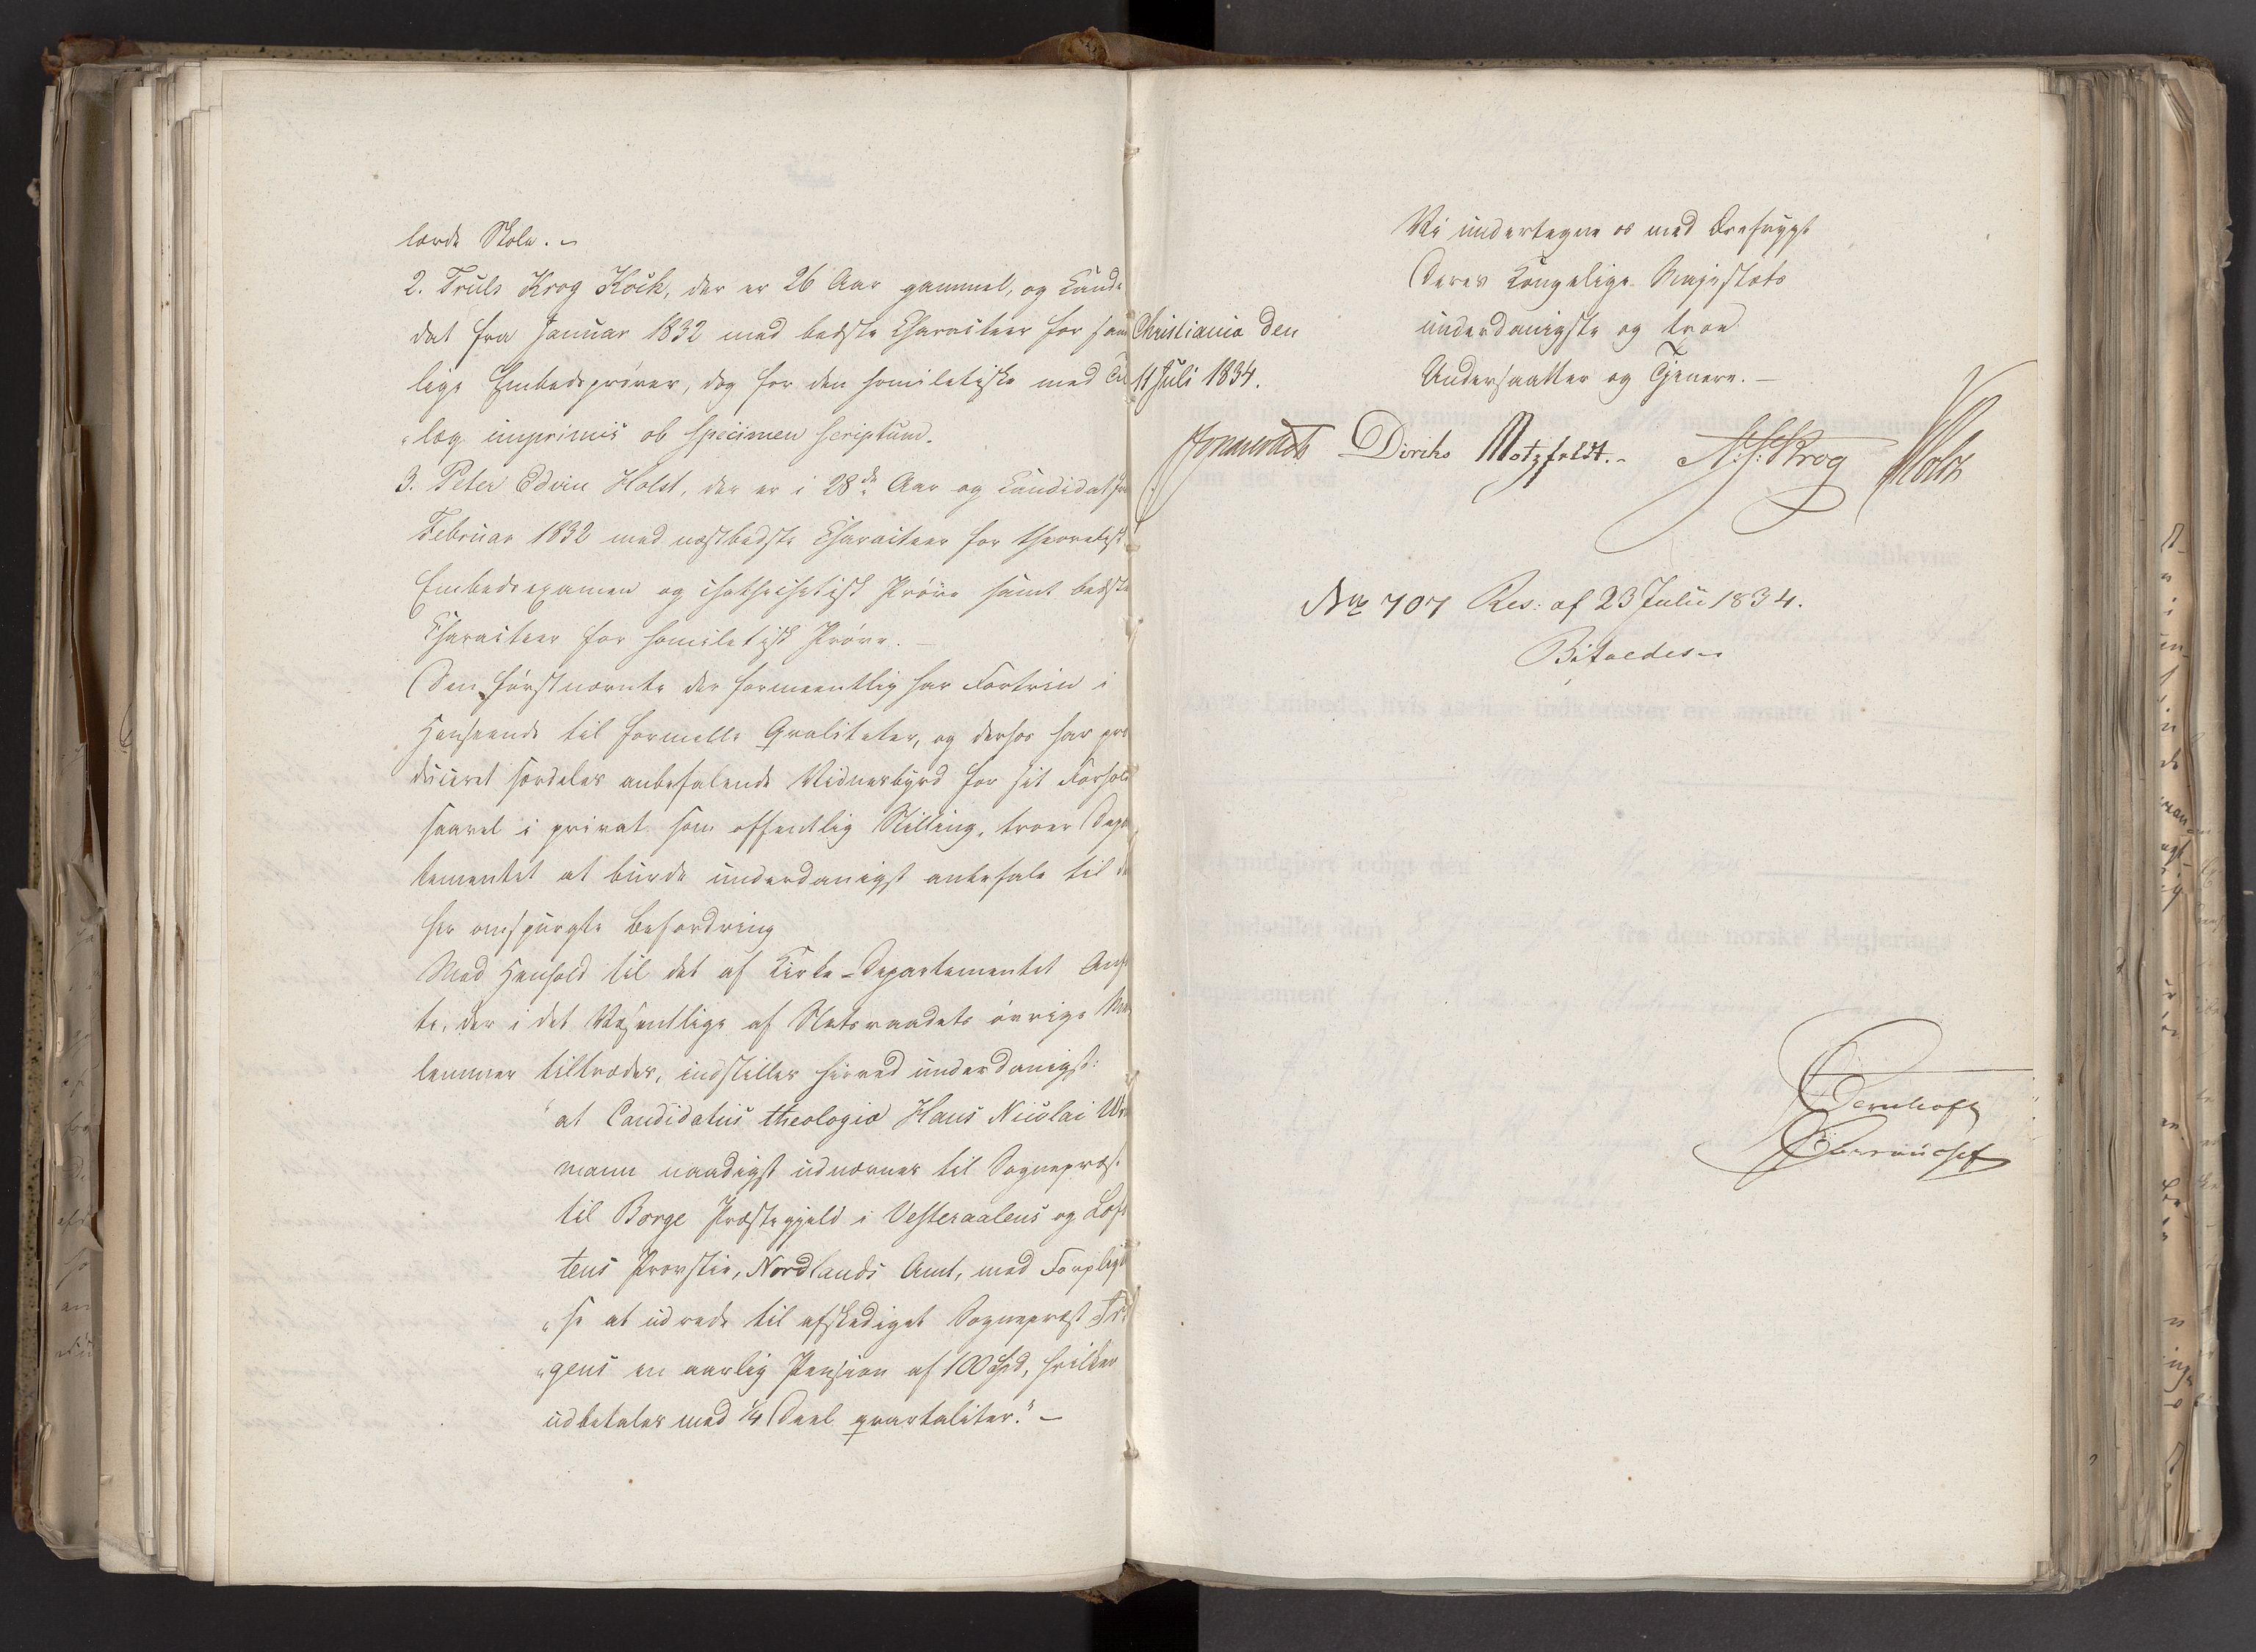 lærde Skole. –
2. Truls Krog Kock, der er 26 Aar gammel, og Candi
dat fra Januar 1832 med bedste Characteer for sam
lige Embedsprøver, dog for den homiletiske med Til
„læg imprimis ob specimen scriptum.
3. Peter Edvin Holst, der er i 28de Aar og Candidat fra
Februar 1832 med næstbedste Characteer for theoretisk
Embedsexamen og chatechetisk Prøve samt bedste
Characteer for homiletisk Prøve. –
Den Førstnævnte der formeentlig har Fortrin i
Henseende til formelle Qvaliteter, og derhos har pro
duceret særdeles anbefalende Vidnesbyrd for sit Forhold
saavel i privat som offentlig Stilling, troer Depar
tementet at burde underdanigst anbefale til den
her omspurgte Befordring
Med Henhold til det af Kirke-Departementet Anfør
te, der i det Væsentlige af Statsraadets øvrige Med
lemmer tiltrædes, indstilles herved underdanigst:
"at Candidatus theologiæ Hans Nicolai
mann naadigst udnævnes til Sognepræst
til Borge Præstegjeld i Vesteraalens og Lofo
tens Provstie, Nordlands Amt, med Forpligtel
„se at udrede til afskediget Sognepræst
„gens en aarlig Pension af 100 Spd, hvilken
udbetales med 1/4 Deel qvartaliter." –
Vi undertegne os med Ærefrygt
Deres Kongelige Majestæts
Christiania den underdanigste og troe
11 Juli 1834. Undersaatter og Tjenere. –
Diriks Motzfeldt. – Krog Holst
No 707 Res: af 23 Julii 1834.
Bifaldes. –